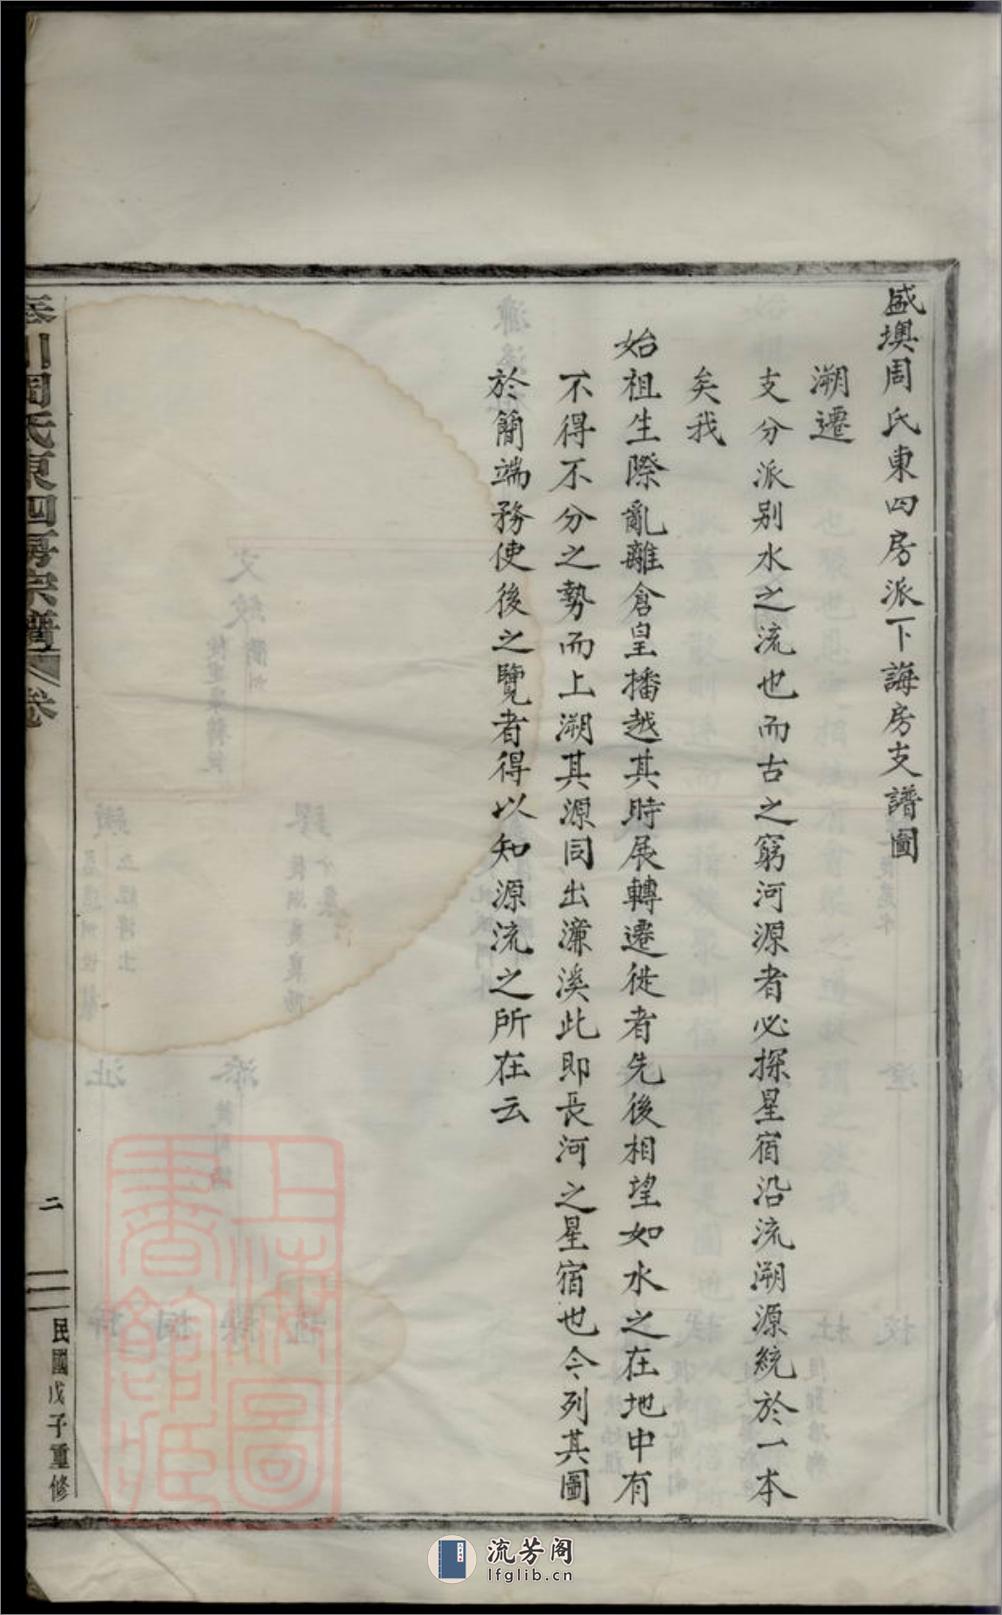 盛墺周氏東四房派下誨房支譜圖
溯遷
支分派别水之流也而古之窮河源者必探星宿沿流溯源統於一本
矣我
始祖生際亂離倉皇播越其時展轉遷徙者先後相望如水之在地中有
不得不分之勢而上溯其源同出濂溪此即長河之星宿也今列其圖
於簡端務使後之覽者得以知源流之所在云
川周氏東四房宗譜 卷
二
民國戊子重修
上海圖書館藏
流芳阁
lfglib.cn